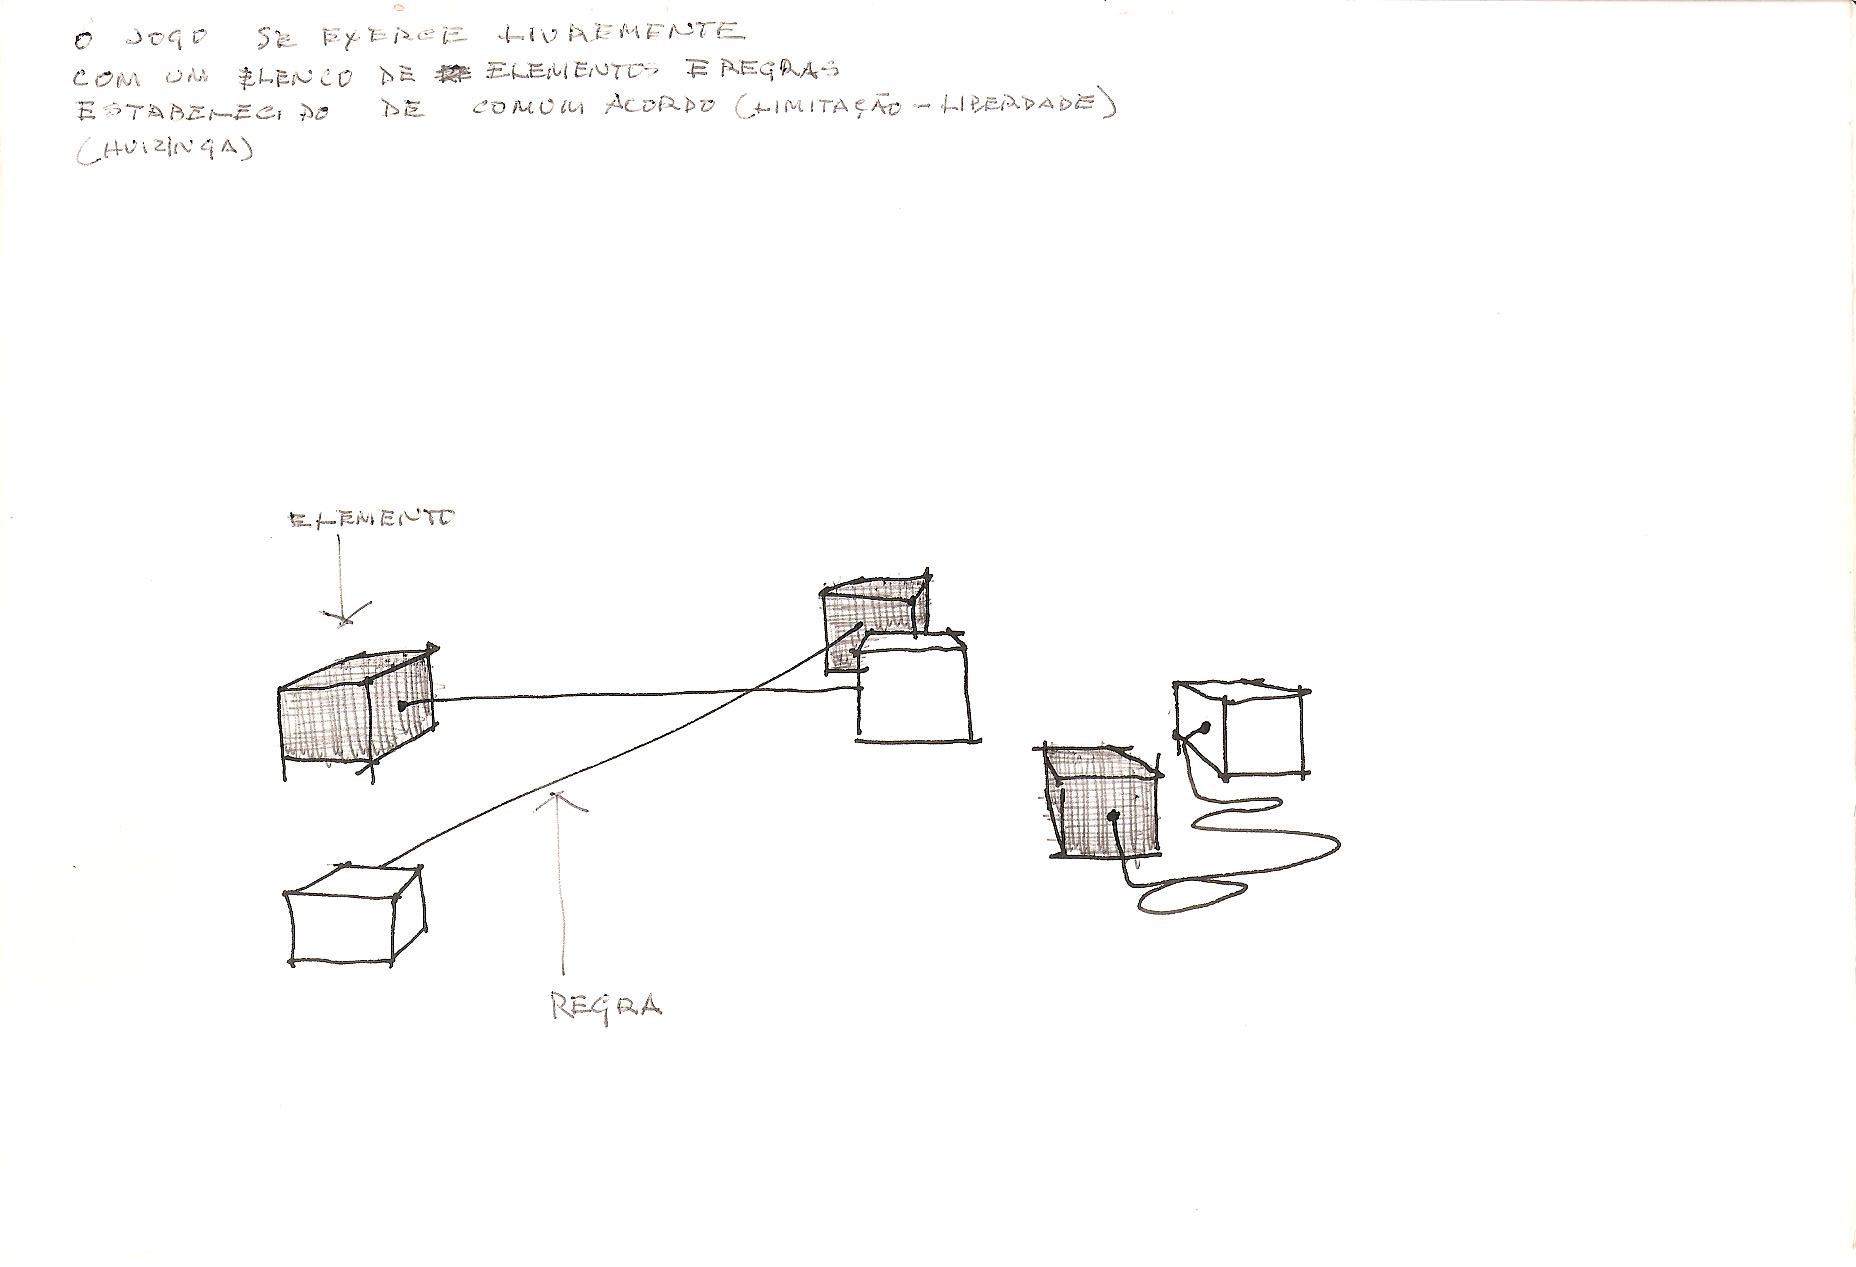 O JOGO SE EXERCE LIVREMENTE
COM UM ELENCO DE ELEMENTOS E REGRAS
ESTABELECIDO DE COMUM ACORDO (LIMITAÇÃO - LIBERDADE)
(HUIZINGA)
ELEMENTO
REGRA